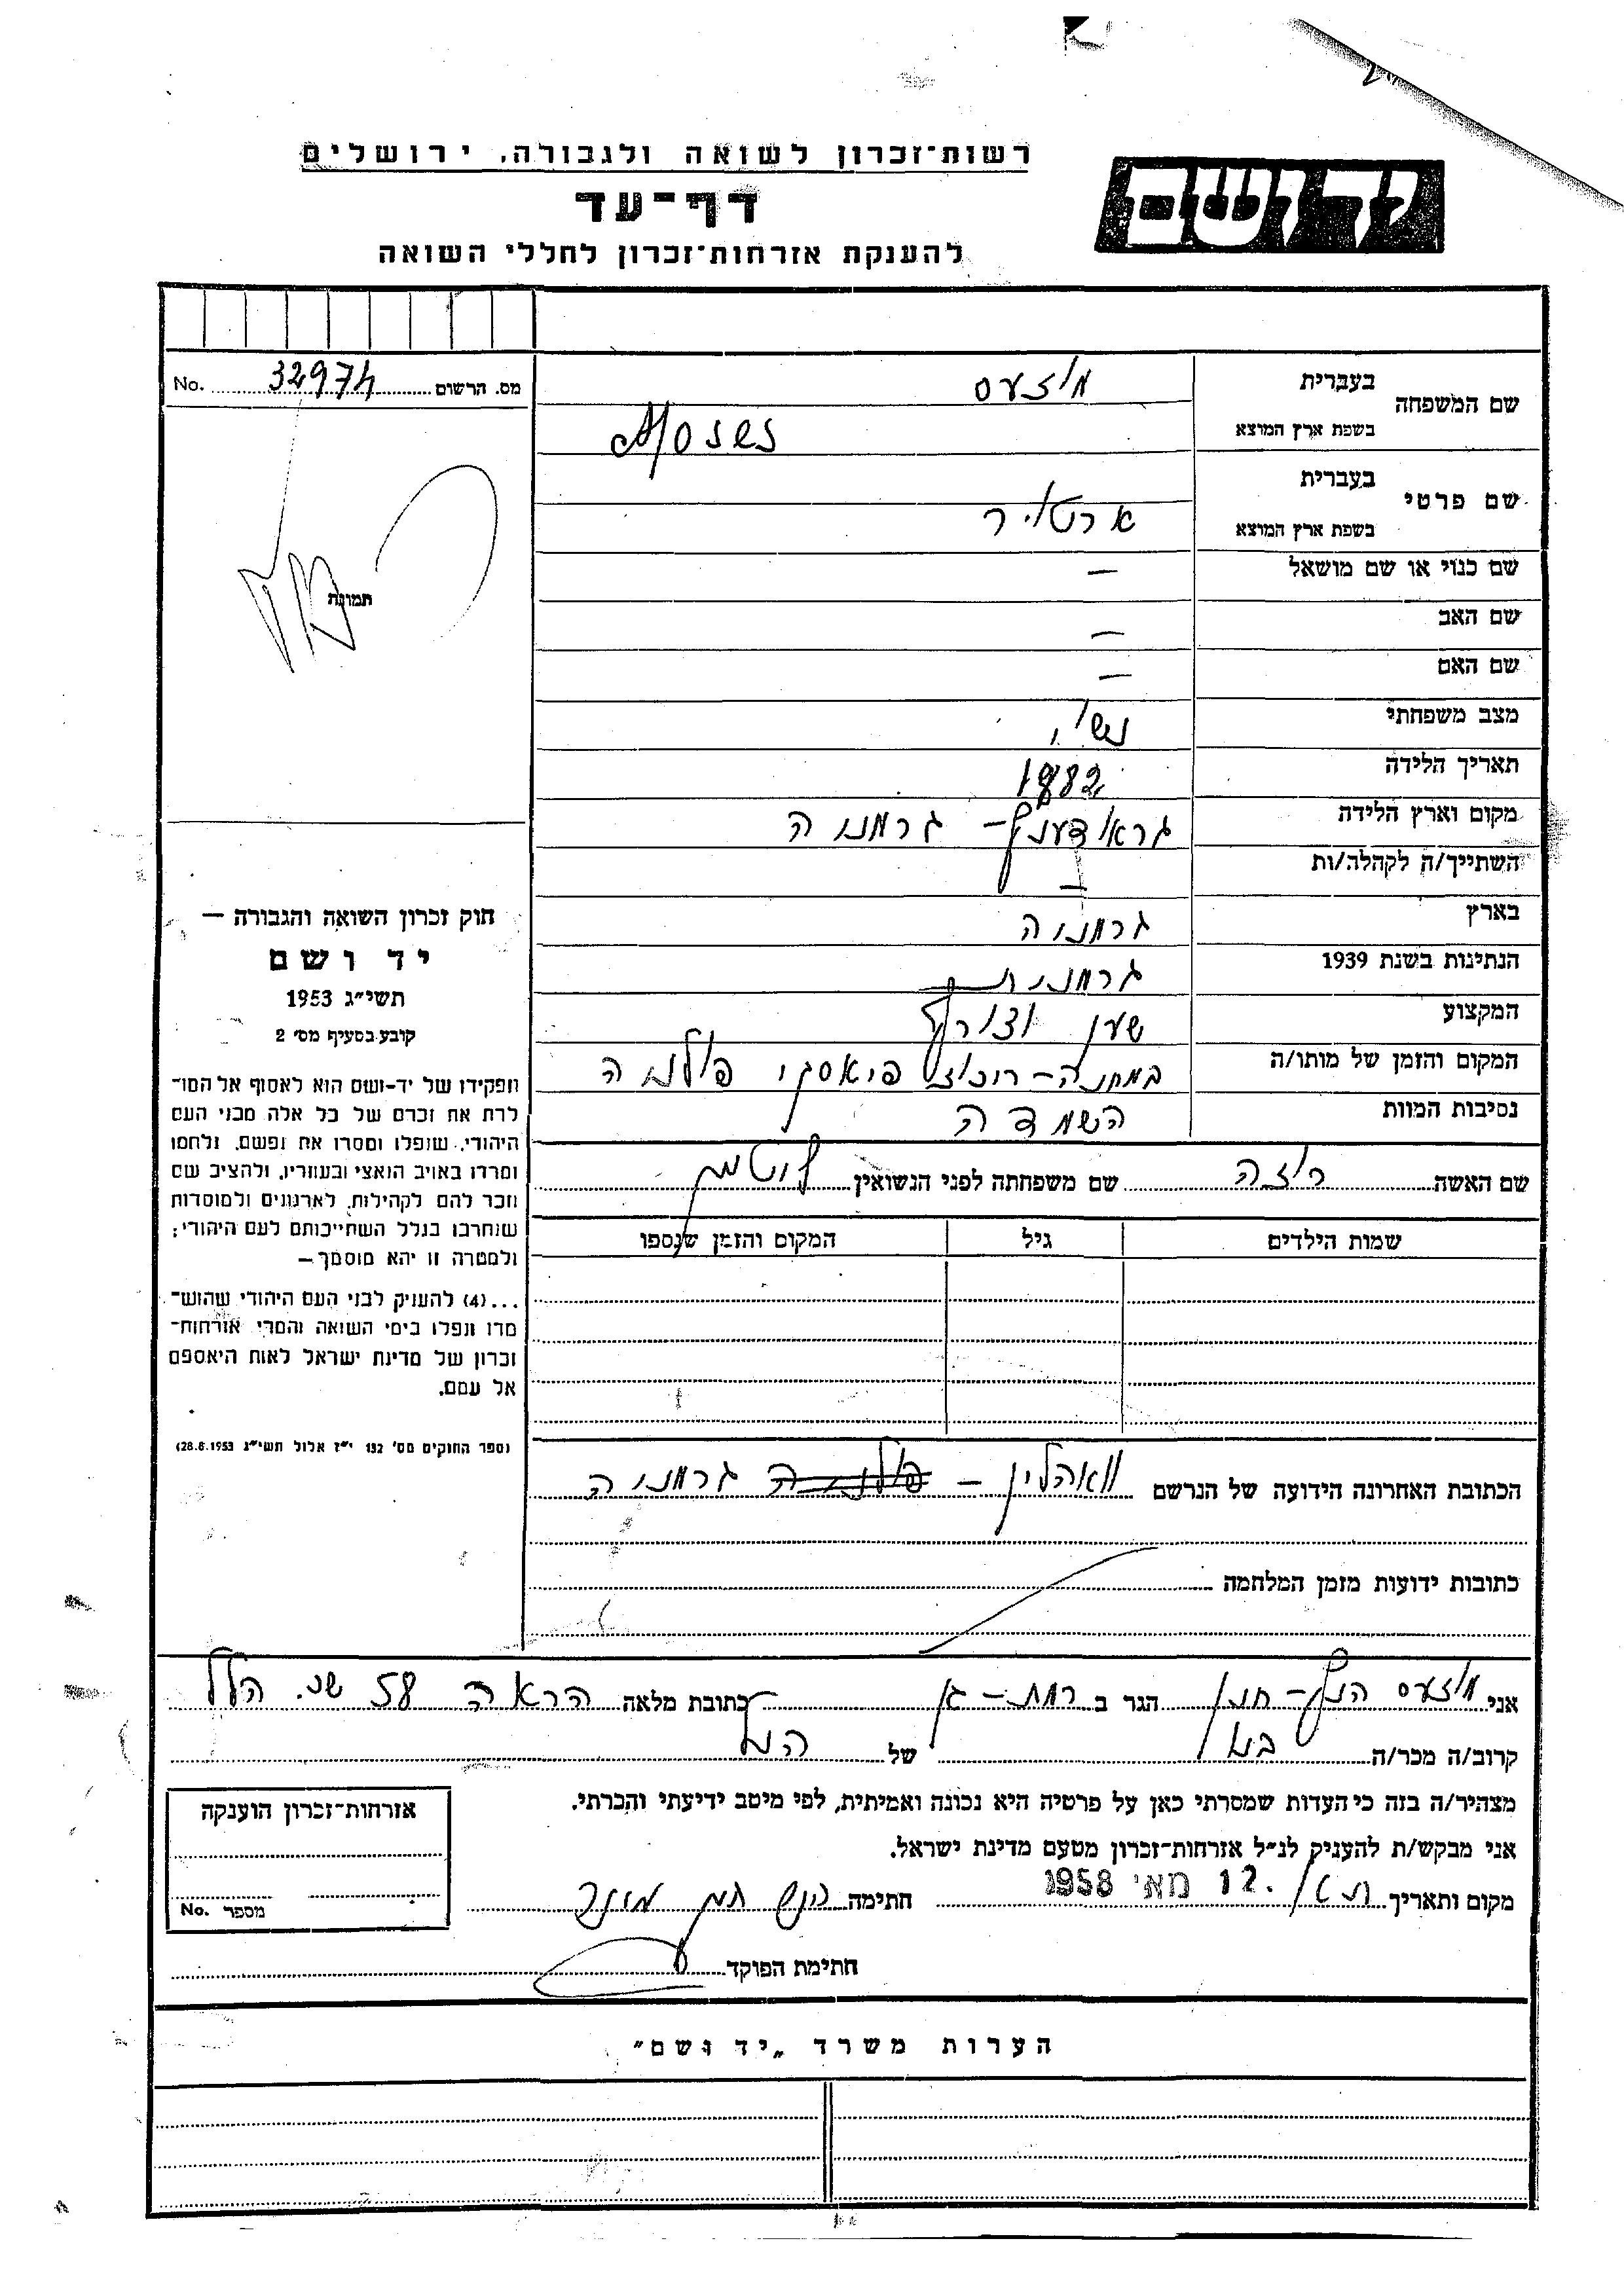 רשות־זכרון לשואה ולגבורה, ירושלים
יד ושם
דף־עד
להענקת אזרחות־זכרון לחללי השואה
מס. הרשום 32974 No.
שם המשפחה
בעברית מוזעס
בשפת ארץ המוצא Moses
שם פרטי
בעברית
ארטור
בשפת ארץ המוצא
שם כנוי או שם מושאל –
שם האב –
שם האם –
מצב משפחתי נשוי
תאריך הלידה 1882
מקום וארץ הלידה גראודענץ – גרמניה
השתייך/ה לקהלה/ות –
בארץ גרמניה
הנתינות בשנת 1939 גרמנית
המקצוע שען וצורף
המקום והזמן של מותו/ה במחנה - פיאסקי פולניה
נסיבות המוות השמדה
שם האשה רוזה שם משפחתה לפני הנשואין
שמות הילדים גיל המקום והזמן שנספו
תמונה
חוק זכרון השואה והגבורה —
יד ושם
תשי״ג 1953
קובע בסעיף מס׳ 2
תפקידו של יד-ושם הוא לאסוף אל המו־
לדת את זכרם של כל אלה מבני העם
היהודי, שנפלו ומסרו את נפשם, נלחמו
ומרדו באויב הנאצי ובעוזריו, ולהציב שם
וזכר להם לקהילות, לארגונים ולמוסדות
שנחרבו בגלל השתייכותם לעם היהודי;
ולמטרה זו יהא מוסמך –
...(4) להעניק לבני העם היהודי שהוש־
מדו ונפלו בימי השואה והמרי אזרחות־
זכרון של מדינת ישראל לאות היאספם
אל עמם.
(ספר החוקים מס׳ 132 י״ז אלול תשי״ג 28.8.1953)
הכתובת האחרונה הידועה של הנרשם – פולניה גרמניה
כתובות ידועות מזמן המלחמה
אני מוזעס הנץ - חנן הגר ב רמת - גן כתובת מלאה הרא״ה 58 שכ. הלל
קרוב/ה מכר/ה בן של הנ״ל
מצהיר/ה בזה כי העדות שמסרתי כאן על פרטיה היא נכונה ואמיתית, לפי מיטב ידיעתי והכרתי.
אני מבקש/ת להעניק לנ״ל אזרחות־זכרון מטעם מדינת ישראל.
מקום ותאריך ת״א 12. מאי 1958 חתימה
חתימת הפוקד
אזרחות־זכרון הוענקה
מספר No.
הערות משרד „יד ושם״